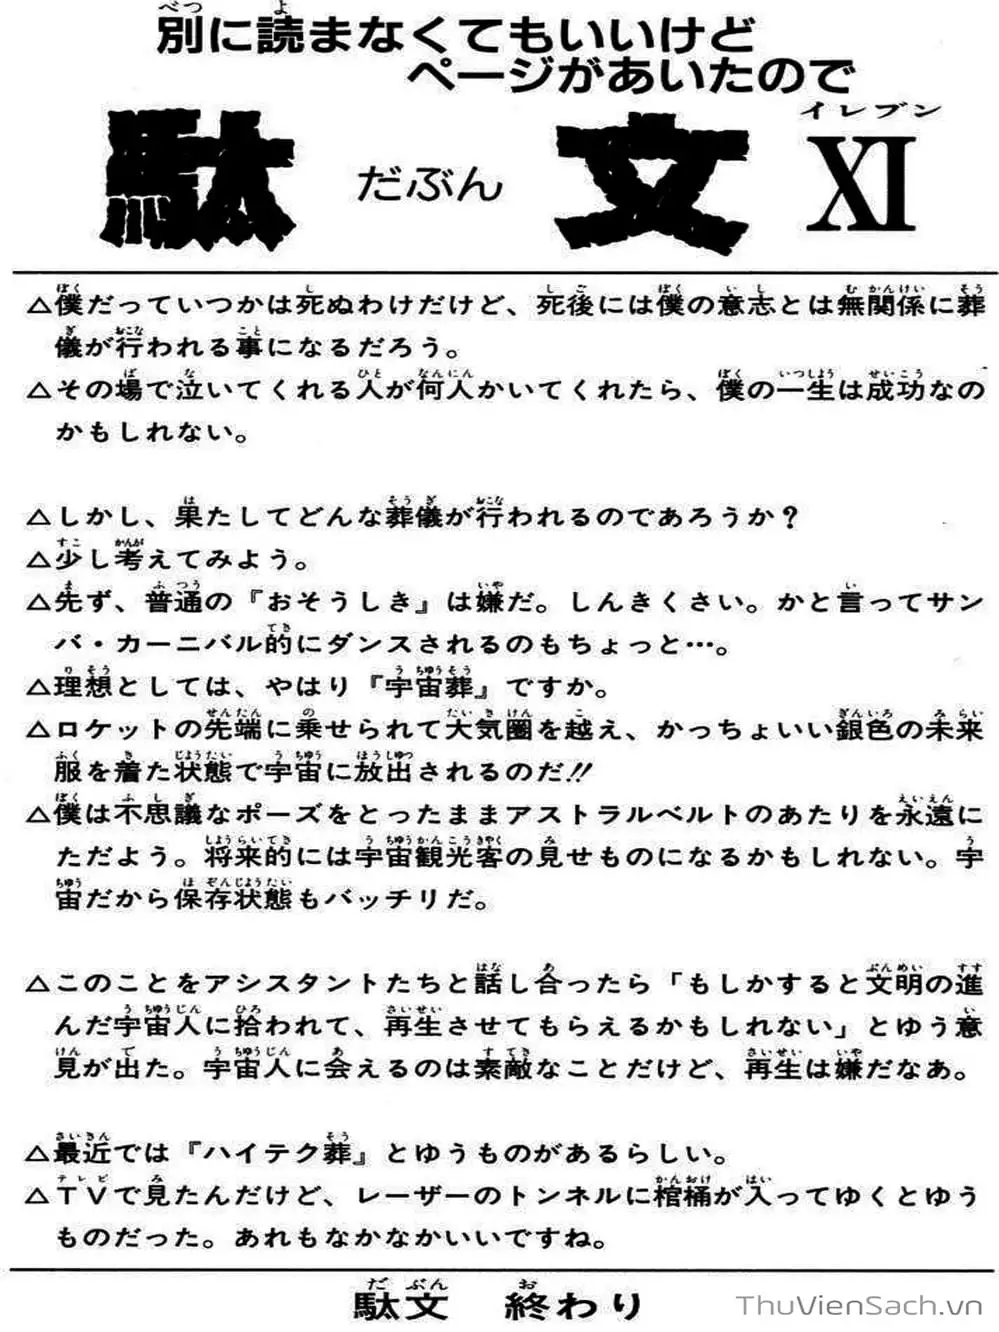 別に読まなくてもいいけど
ページがあいたので
駄文 だぶん XI イレブン
△僕だっていつかは死ぬわけだけど、死後には僕の意志とは無関係に葬
儀が行われる事になるだろう。
△その場で泣いてくれる人が何人かいてくれたら、僕の一生は成功なの
かもしれない。
△しかし、果たしてどんな葬儀が行われるのであろうか？
△少し考えてみよう。
△先ず、普通の『おそうしき』は嫌だ。しんきくさい。かと言ってサン
バ・カーニバル的にダンスされるのもちょっと…。
△理想としては、やはり『宇宙葬』ですか。
△ロケットの先端に乗せられて大気圏を越え、かっちょいい銀色の未来
服を着た状態で宇宙に放出されるのだ!!
△僕は不思議なポーズをとったままアストラルベルトのあたりを永遠に
ただよう。将来的には宇宙観光客の見せものになるかもしれない。宇
宙だから保存状態もバッチリだ。
△このことをアシスタントたちと話し合ったら「もしかすると文明の進
んだ宇宙人に拾われて、再生させてもらえるかもしれない」とゆう意
見が出た。宇宙人に会えるのは素敵なことだけど、再生は嫌だなあ。
△最近では『ハイテク葬』とゆうものがあるらしい。
△TVで見たんだけど、レーザーのトンネルに棺桶が入ってゆくとゆう
ものだった。あれもなかなかいいですね。
駄文 終わり
ThuVienSach.vn